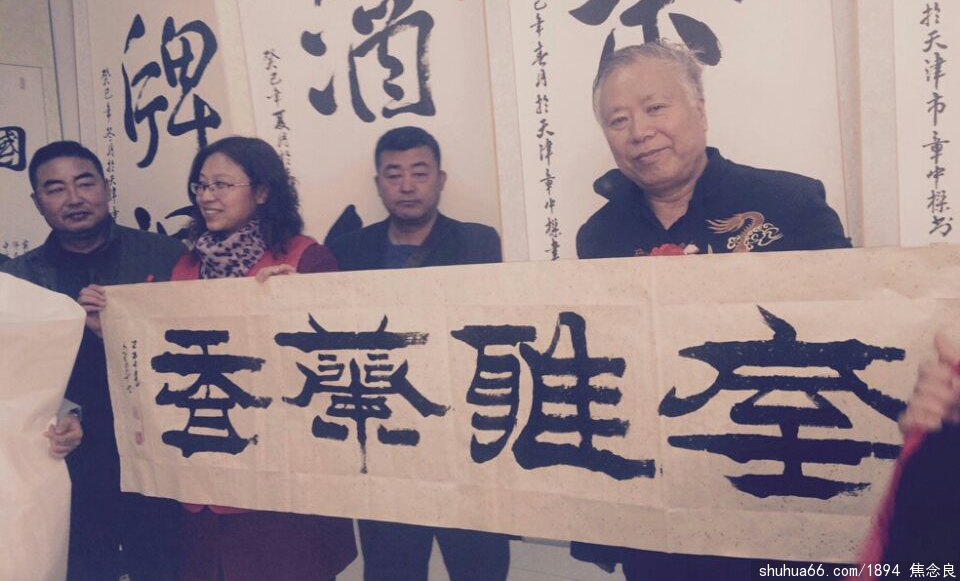 於天津市章中樑书
巳年春月於天津章中樑書
酒
癸巳年夏月於
牌
癸巳年冬月於天津
國
室雅蘭香
shuhua66.com/1894 焦念良